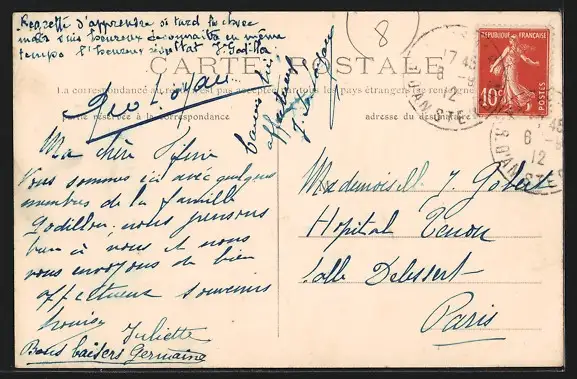 Regrette d'apprendre si tard
mais suis heureux de connaître en même
temps l'heureux résultat J. Godillon
8
CARTE POSTALE
La correspondance au recto n'est pas acceptée par tous les pays étrangers
réservé à la correspondance
adresse du destinataire
Geo Loyau
affectueux
Ma chère Fifine
Nous sommes ici avec quelques
membres de la famille
Godillon, nous pensons
bien à vous et nous
vous envoyons de bien
affectueux souvenirs
Louise
Juliette
Bons baisers Germaine
Mademoiselle J. Gobert
Hôpital Tenon
Salle Delessert
Paris
REPUBLIQUE FRANÇAISE
10c
POSTES
17 45
6 -9
12
R. D'AMSTE